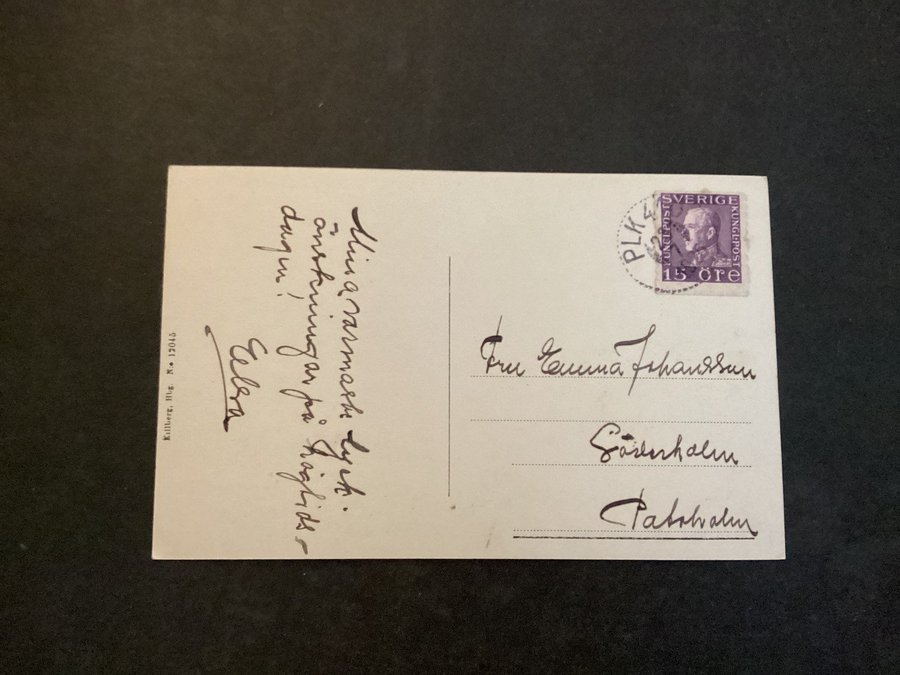 Mina varmaste lyck-
önskningar på högtids-
dagen!
Ebba
Killberg, Hbg. N:o 12045
PLK 4
SVERIGE
KUNGL·POST
KUNGL·POST
15 ÖRE
Fru Emma Johansson
Söderholm
Pataholm